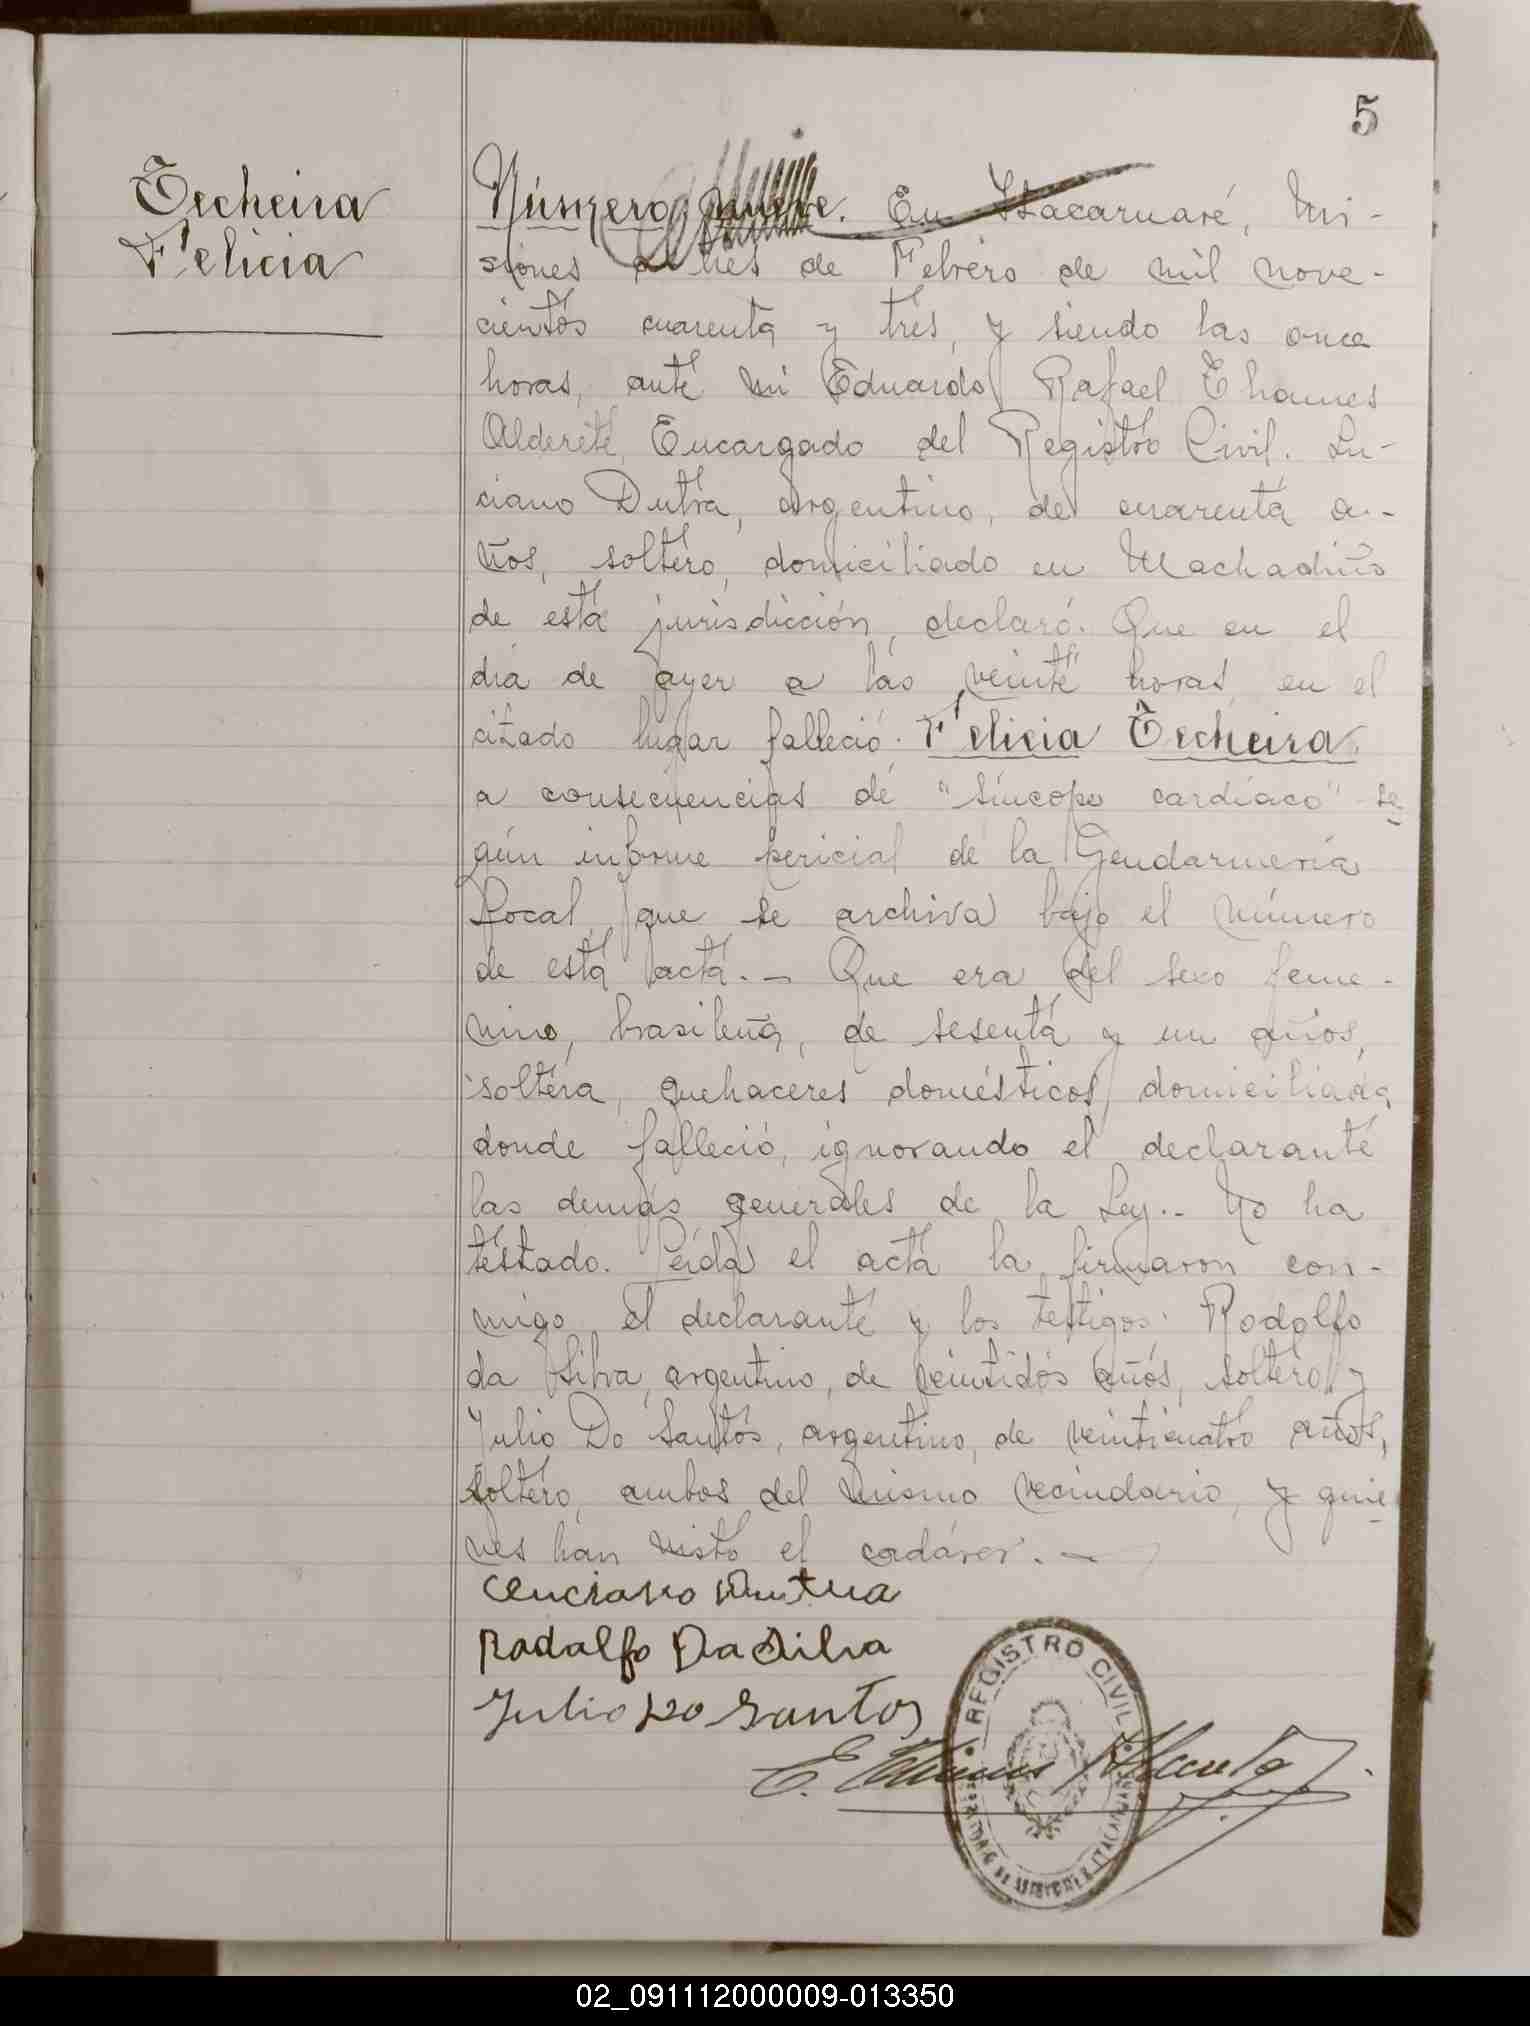 5
Techeira
Felicia
Número nueve. En Itacaruaré, Mi-
siones a tres de Febrero de mil nove-
cientos cuarenta y tres, y siendo las once
horas, ante mi Eduardo Rafael Thames
Alderete, Encargado del Registro Civil. Lu-
ciano Dutra, argentino, de cuarenta a-
ños, soltero, domiciliado en Machadiño
de esta jurisdicción, declaró: Que en el
día de ayer a las veinte horas, en el
citado lugar falleció: Felicia Techeira
a consecuencias de "síncope cardíaco" se-
gún informe pericial de la Gendarmería
Local, que se archiva bajo el número
de esta acta.- Que era del sexo feme-
nino, brasileña, de sesenta y un años,
soltera, quehaceres domésticos, domiciliada
donde falleció, ignorando el declarante
las demás generales de la Ley.- No ha
testado. Leída el acta la firmaron con-
migo, el declarante y los testigos: Rodolfo
da Silva, argentino, de veintidós años, soltero y
Julio Do Santos, argentino, de veinticuatro años,
soltero, ambos del mismo vecindario, y quie-
nes han visto el cadáver.-
Rodalfo Da Silva
Julio Do Santos
REGISTRO CIVIL
E. Thames Alderete
02_091112000009-013350